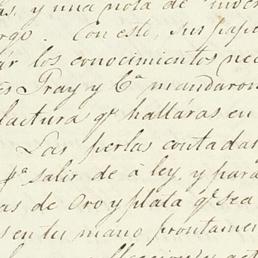 as, y una nota de
rgo. Con esto, sus pape
ar los conocimientos nec
es Tray y Cª mandaron
factura qe halláras en
Las perlas contadas
pª salir de à ley, y para
as de Oro y plata qe sea
s en tu mano prontamen